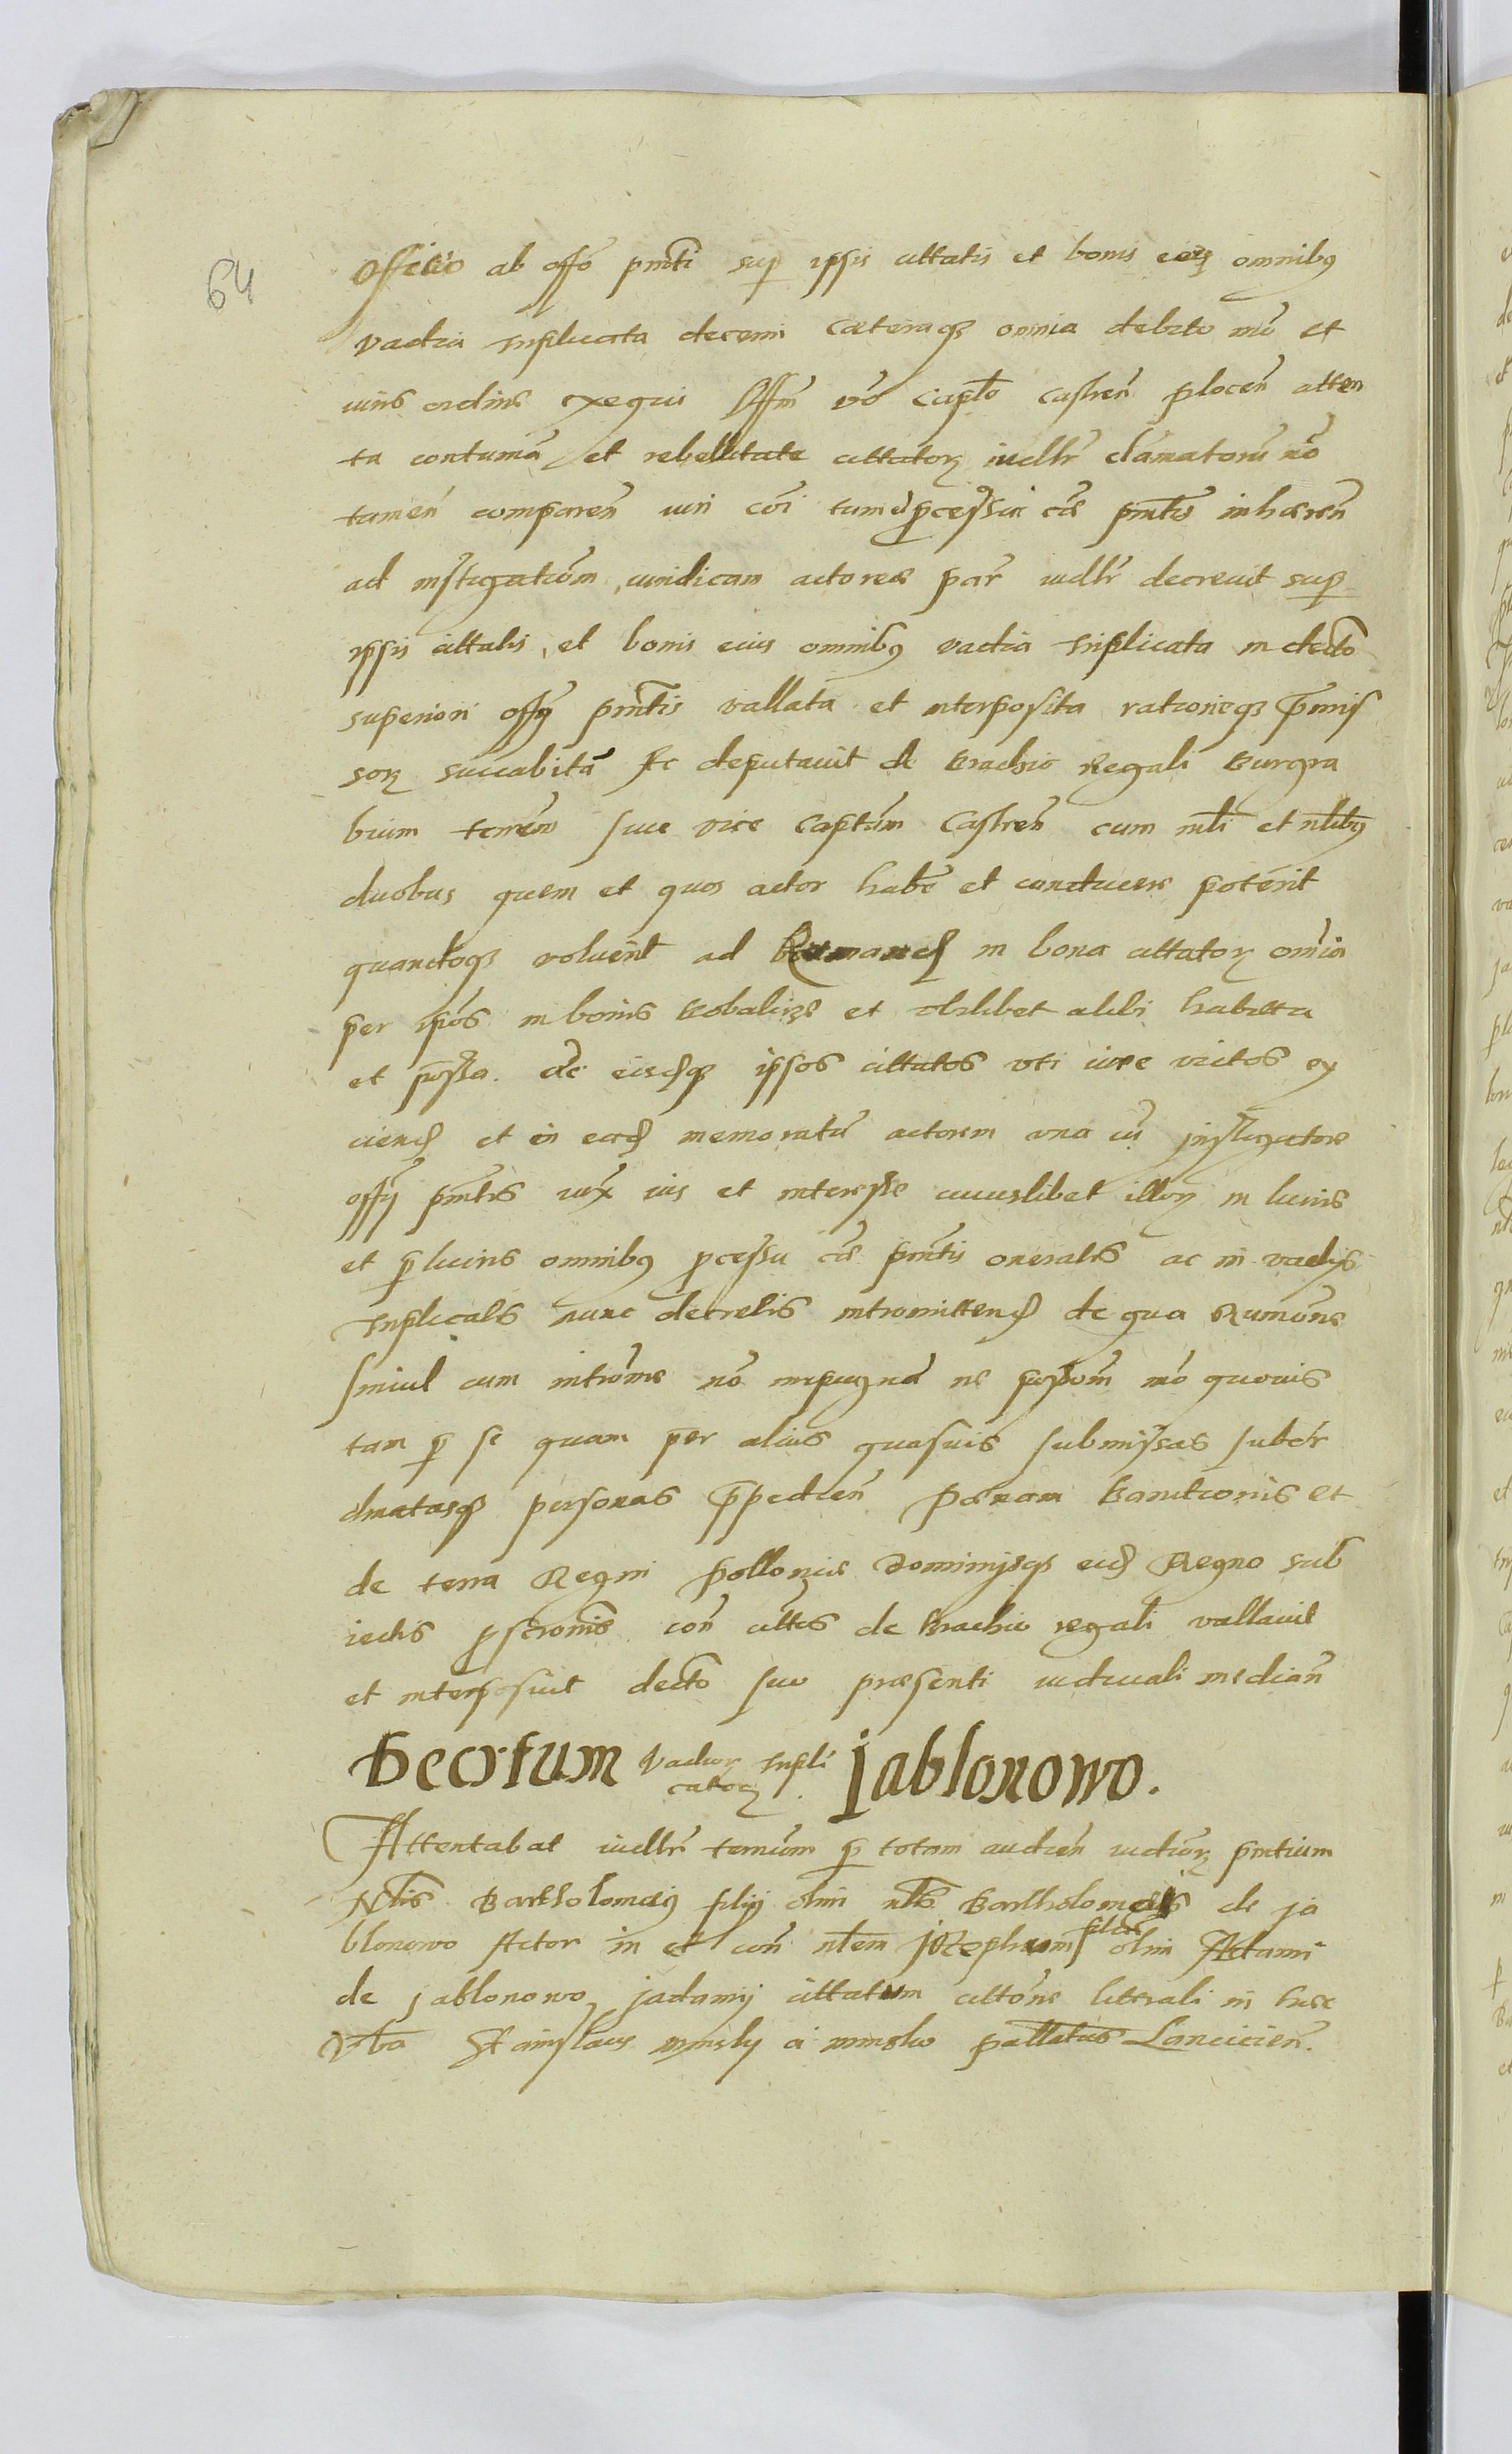 64
Officio ab offo pnti sup ipsis cittatis et bonis eorz omnibus
vadia triplicata decerni caeteraqz omnia debito mo et
iuris ordine exequi Offm vo Capto Castren plocen atten
ta contuma et rebellitate cittatorz iudlr clamatorum no
tamen comparen iuri coi tum pcessui cae pntis inhaeren
ad instigationem iuridicam actoreae par iudlr decrevit sup
ipsis cittatis, et bonis eius omnibus vadia triplicata in decto
superiori offy pntis vallata et interposita rationeqz pmis
sorz succubita Ac deputavit de Brachio Regali Burgra
bium terren sive vice Captum Castren cum mli et nlibus
duobus quem et quos actor habe et conducere poterit
quandoqz voluerit ad Rumand in bona cittatorz omnia
per ipsos in bonis Kobalicze et vbilibet alibi habita
et possa. de eisdqz ipsos cittatos vti iure victos ey
ciend et in ead memoratu actorem vna cu instigatore
offy pntis iux ius et interesse cuiuslibet illorz in lucris
et p lucris omnibus pcessu cae pntis oneratis ac in vadys
triplicatis nunc decretis intromittend de qua Rumone
simul cum introme no repugnad ne ipsom mo quovis
tam p se quam per alias quasuis submissas subor
dinatasqz personas ppedien Paenam Banitionis et
de terra Regni Polloniae Dominysqz eid Regno sub
iectis pscronis con cittos de Brachio regali vallavit
et interposuit decto suo praesenti iudiciali median
Decretum Vadiorz tripli
catorz Jablonowo.
Attentabat iudlr terminum p totam audien iudiciorz pntium
Nlis Bartholomeus filius olim nlis Bartholomei de ja
blonowo Actor in et con nlem jozephum filium olim Adami
de jablonowo jadamy cittatum cittone litterali in haec
Vba Stanislaus minsky a minsko pallatinus Lancicien.